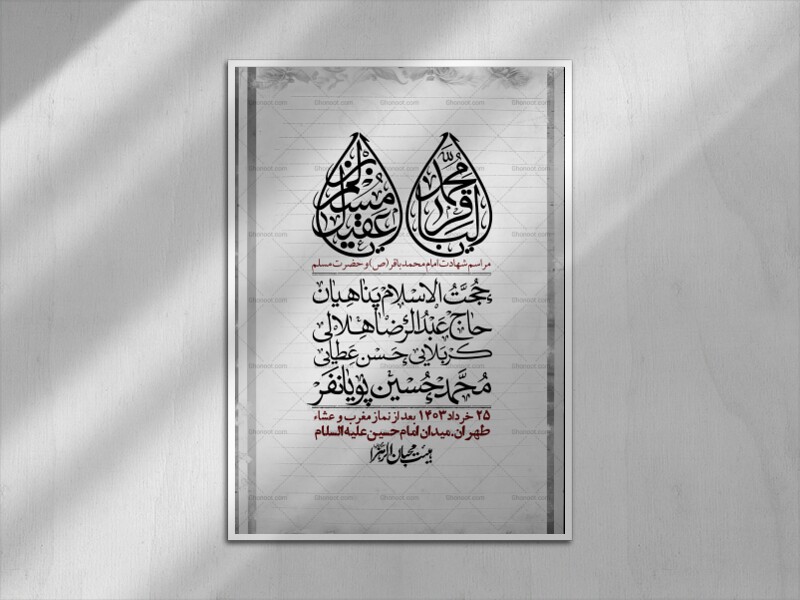 یا محمد الباقر
یا مسلم بن عقیل
مراسم شهادت امام محمد باقر (ص) و حضرت مسلم
حُجَّتُ الاسلام پناهیان
حاج عَبدُالرِّضا هلالی
کربلایی حَسن عطایی
مُحَمَّد حُسین پویانفر
۲۵ خرداد ۱۴۰۳ بعد از نماز مغرب و عشاء
طهران.میدان امام حسین علیه السلام
هیئت محبان الزهرا